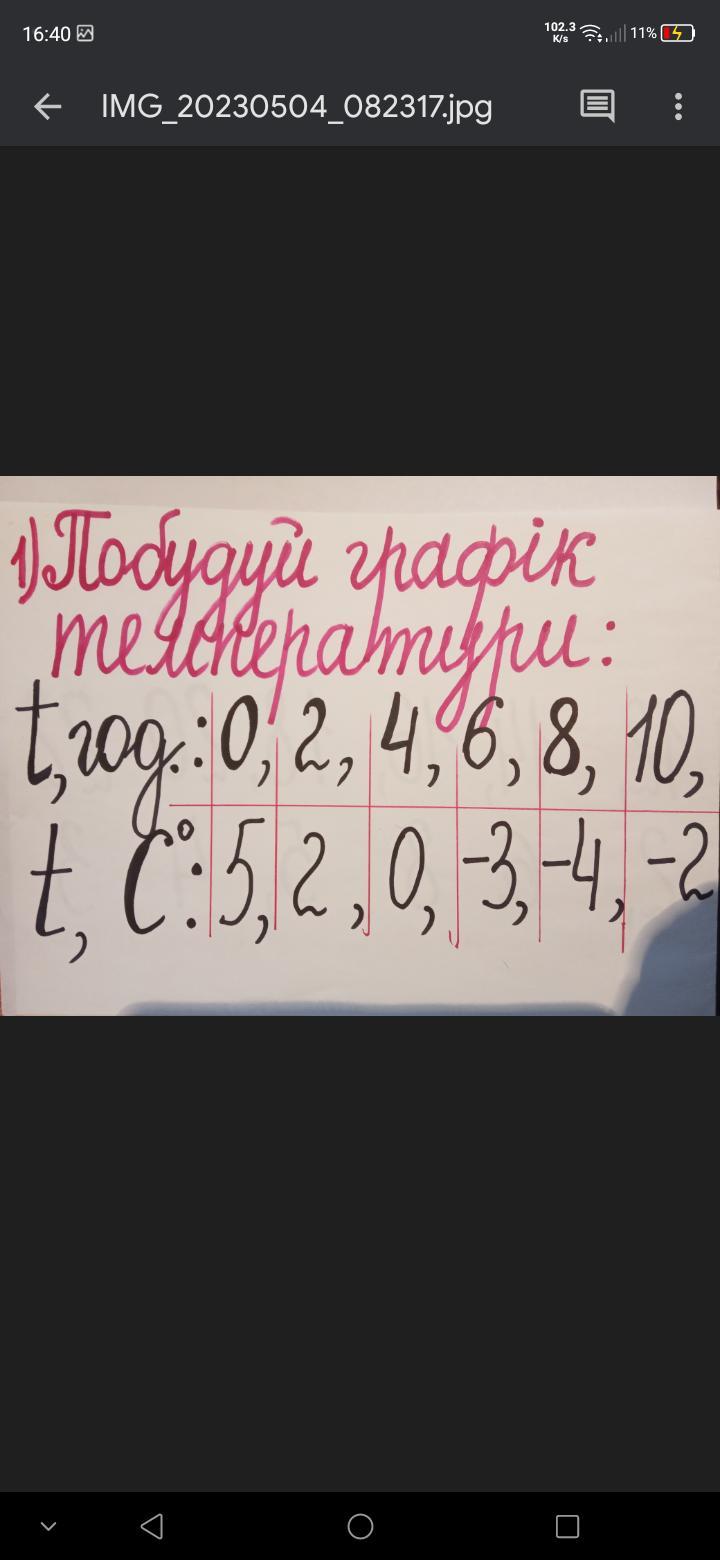 16:40 102.3 K/s 11%
IMG_20230504_082317.jpg
1) Побудуй графік
температури:
t, год.: 0, 2, 4, 6, 8, 10,
t, C°: 5, 2, 0, -3, -4, -2